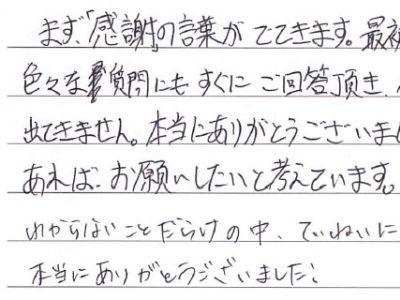 まず、「感謝」の言葉が でてきます。最初
色々な質問にも すぐに ご回答頂き、
出てきません。本当にありがとうございまし
あれば、お願いしたいと考えています。
わからないことだらけの中、ていねいに
本当にありがとうございました!